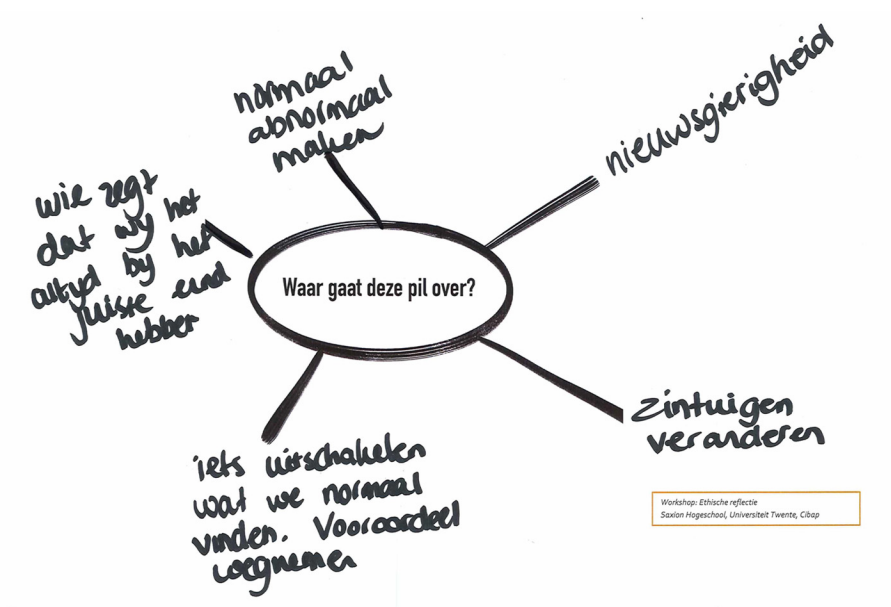 normaal
abnormaal
maken
nieuwsgierigheid
wie zegt
dat wy het
altyd by het
juiste eind
hebben
Waar gaat deze pil over?
zintuigen
veranderen
iets uitschakelen
wat we normaal
vinden. Vooroordeel
wegnemen
Workshop: Ethische reflectie
Saxion Hogeschool, Universiteit Twente, Cibap